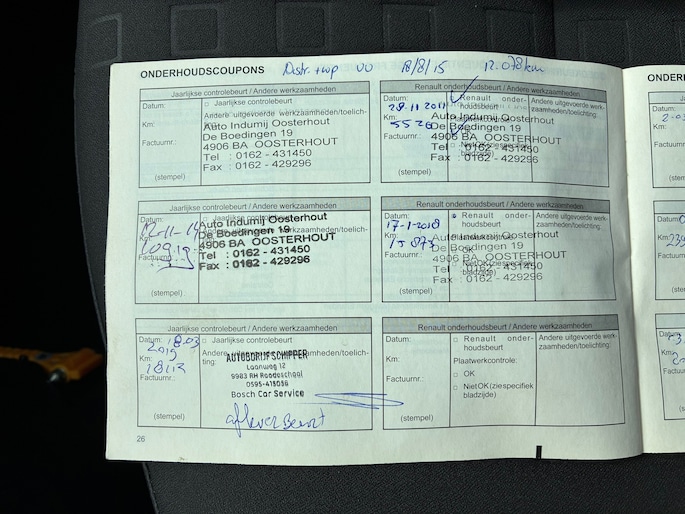 ONDERHOUDSCOUPONS Distr. + wp 18/8/15 12.078 km
Jaarlijkse controlebeurt / Andere werkzaamheden
Datum:
Km:
Factuurnr.:
(stempel)
Jaarlijkse controlebeurt
Andere werkzaamheden/toelich-
Auto Indumij Oosterhout
De Boedingen 19
4906 BA OOSTERHOUT
Tel : 0162 - 431450
Fax : 0162 - 429296
Renault onderhoudsbeurt / Andere werkzaamheden
Datum:
28 11 2011
Km:
5526
Factuurnr.:
(stempel)
Renault onder-
houdsbeurt
Andere uitgevoerde werk-
zaamheden/toelichting:
Auto Indumij Oosterhout
De Boedingen 19
4906 BA OOSTERHOUT
Tel : 0162 - 431450
Fax : 0162 - 429296
Jaarlijkse controlebeurt / Andere werkzaamheden
Datum:
Km:
Factuurnr.:
(stempel)
Auto Indumij Oosterhout
De Boedingen 19
4906 BA OOSTERHOUT
Tel : 0162 - 431450
Fax : 0162 - 429296
Renault onderhoudsbeurt / Andere werkzaamheden
Datum:
17-1-2018
Km:
Factuurnr.:
(stempel)
Renault onder-
houdsbeurt
OK
Niet OK (zie specifiek
bladzijde)
Andere uitgevoerde werk-
zaamheden/toelichting:
Auto Indumij Oosterhout
De Boedingen 19
4906 BA OOSTERHOUT
Tel : 0162 - 431450
Fax : 0162 - 429296
Jaarlijkse controlebeurt / Andere werkzaamheden
Datum: 18.03
2019
Km:
Factuurnr.:
(stempel)
Jaarlijkse controlebeurt
Andere werkzaamheden/toelich-
ting:
AUTOBEDRIJF SCHIPPER
Laanweg 12
9983 RH Roodeschool
Bosch Car Service
aflever Beurt
Renault onderhoudsbeurt / Andere werkzaamheden
Datum:
Km:
Factuurnr.:
(stempel)
Renault onder-
houdsbeurt
Plaatwerkcontrole:
OK
Niet OK (zie specifiek
bladzijde)
Andere uitgevoerde werk-
zaamheden/toelichting:
26